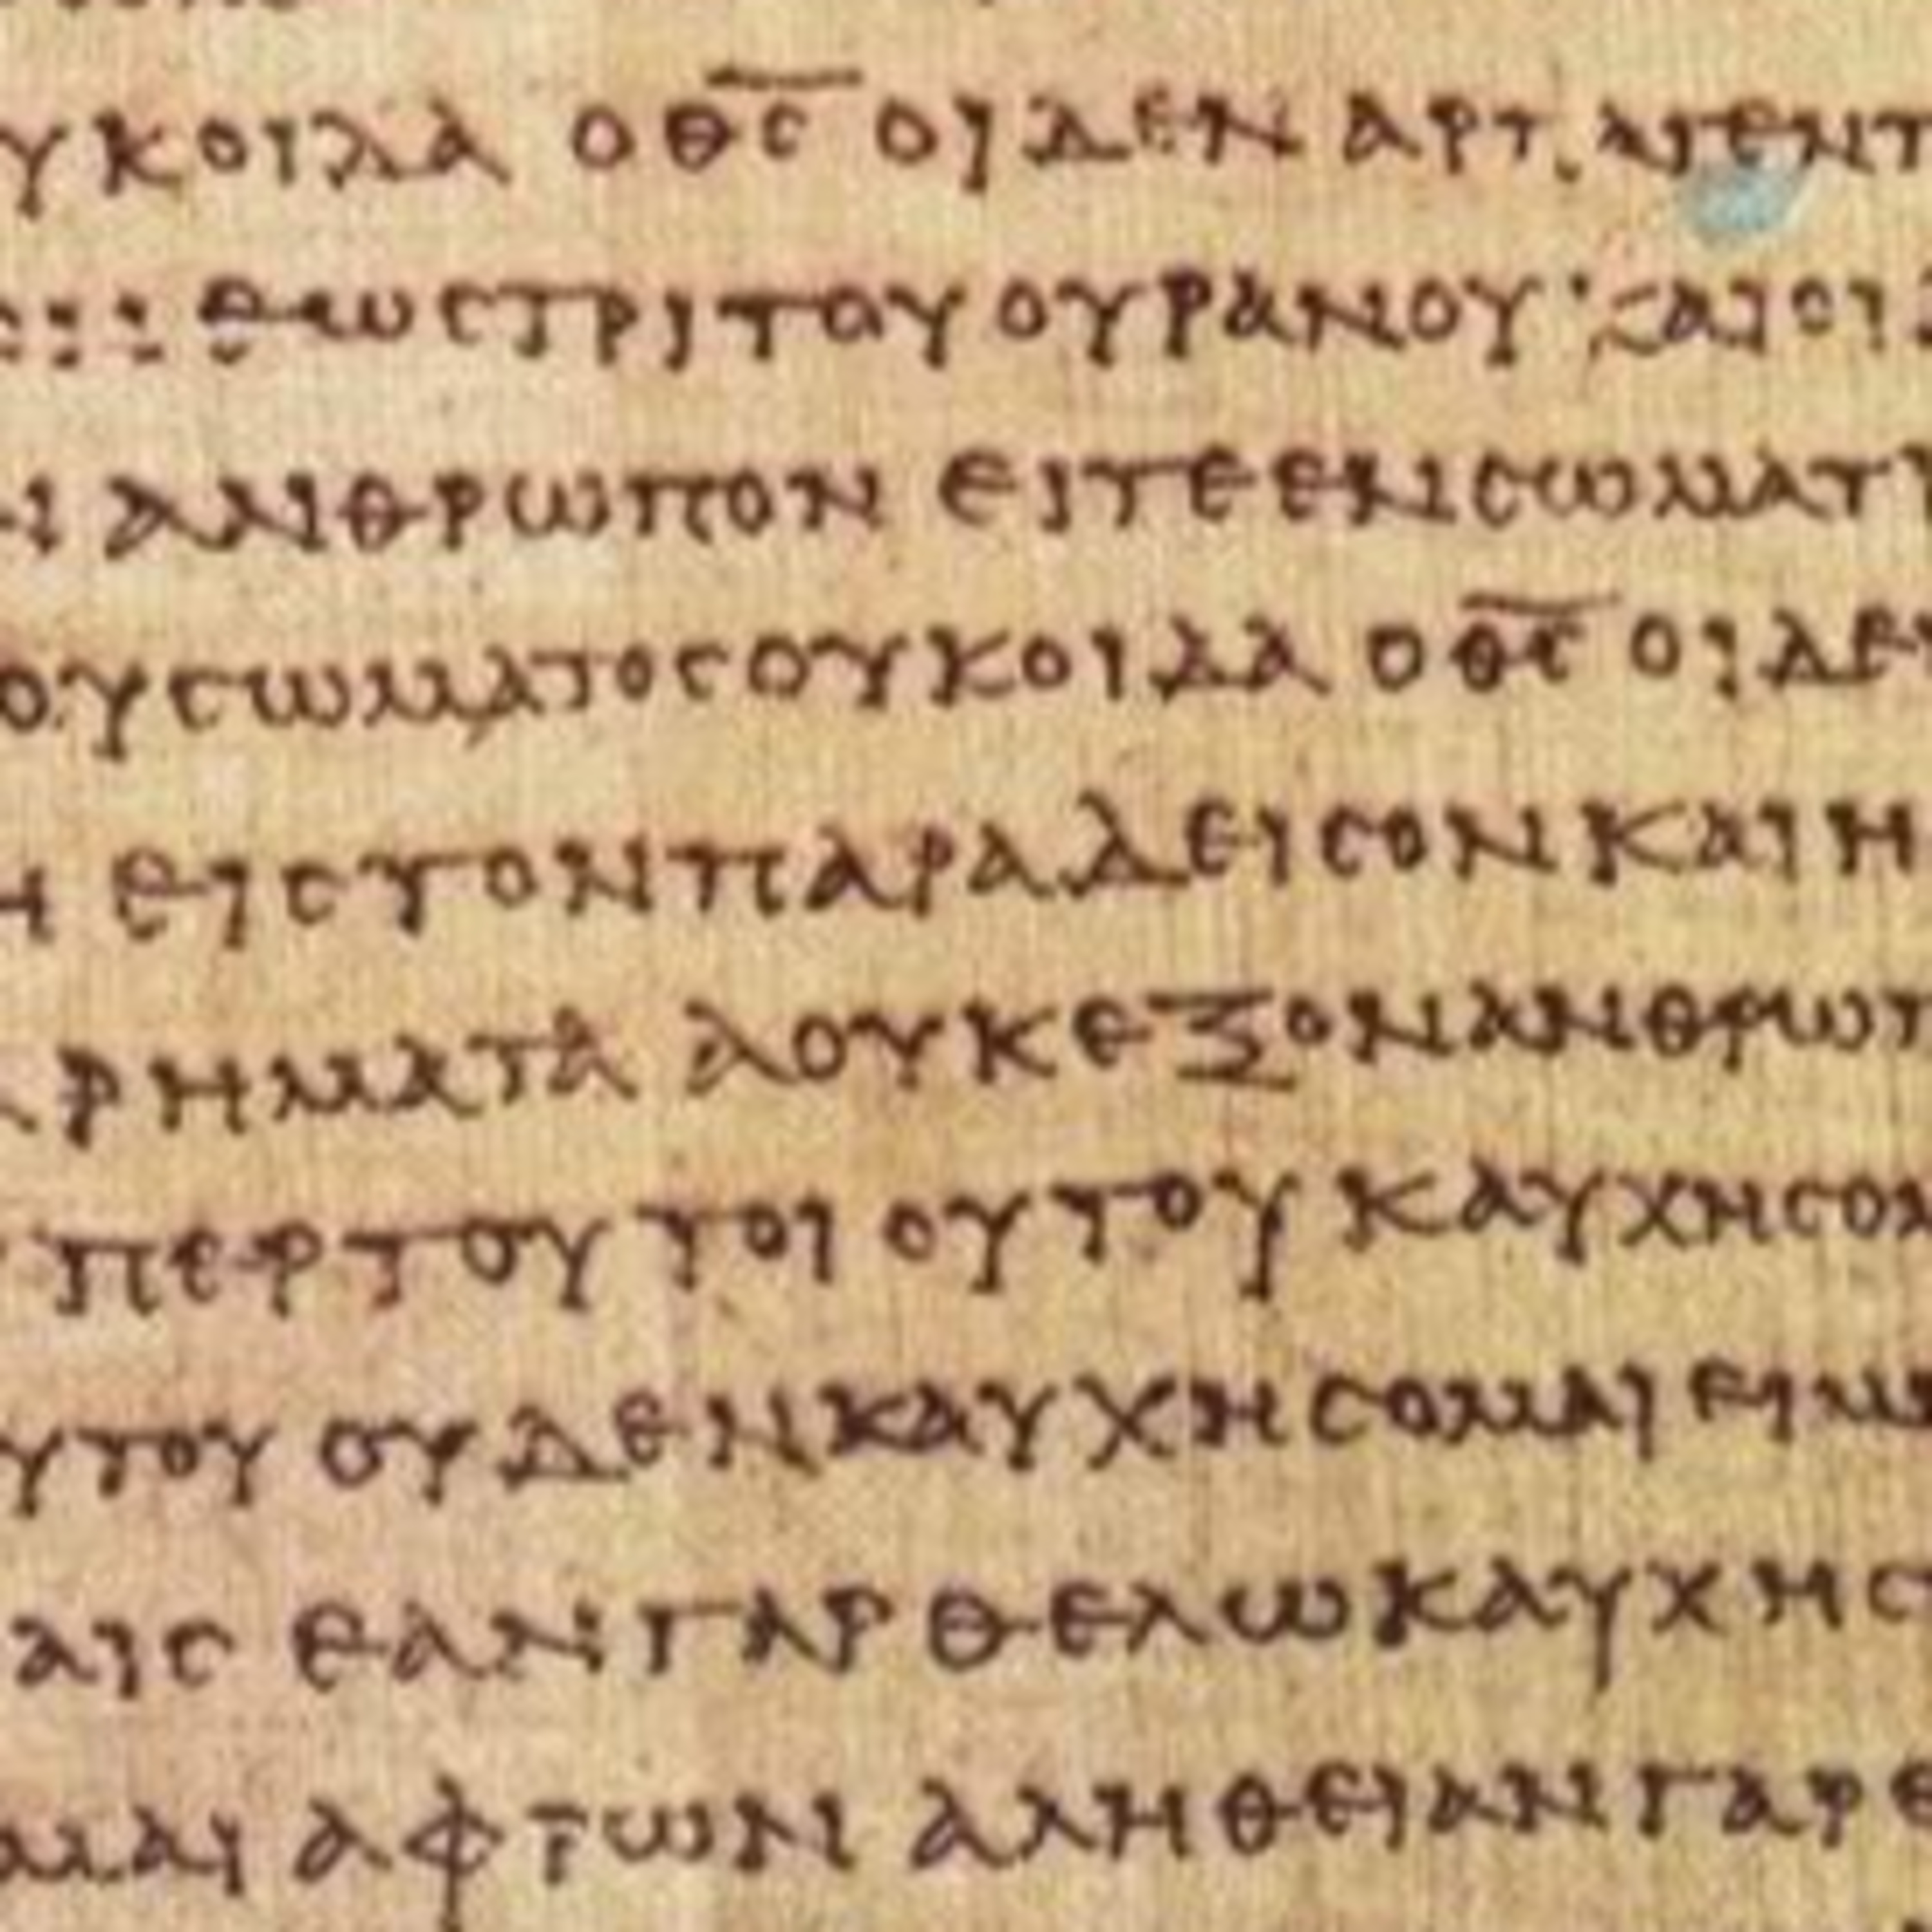 ΥΚΟΙΔΑ Ο Θ̅Σ̅ ΟΙΔΕΝ ΑΡΠ
ΕΩΣΤΡΙΤΟΥ ΟΥΡΑΝΟΥ ΚΑΙΟΙΔ
Ν ΑΝΘΡΩΠΟΝ ΕΙΤΕΕΝΣΩΜΑΤΙ
ΟΥΣΩΜΑΤΟΣΟΥΚΟΙΔΑ Ο Θ̅Σ̅ ΟΙΔΕΝ
Η ΕΙΣΤΟΝΠΑΡΑΔΕΙΣΟΝΚΑΙΗ
ΑΡΗΜΑΤΑ ΑΟΥΚΕΞΟΝΑΝΘΡΩΠ
ΠΕΡΤΟΥ ΤΟΙΟΥΤΟΥ ΚΑΥΧΗΣΟΜ
ΥΤΟΥ ΟΥΔΕΝΚΑΥΧΗΣΟΜΑΙ ΕΙΜΗ
ΑΙΣ ΕΑΝΓΑΡΘΕΛΩΚΑΥΧΗΣ
ΜΑΙ ΑΦΡΩΝ ΑΛΗΘΕΙΑΝΓΑΡΕ